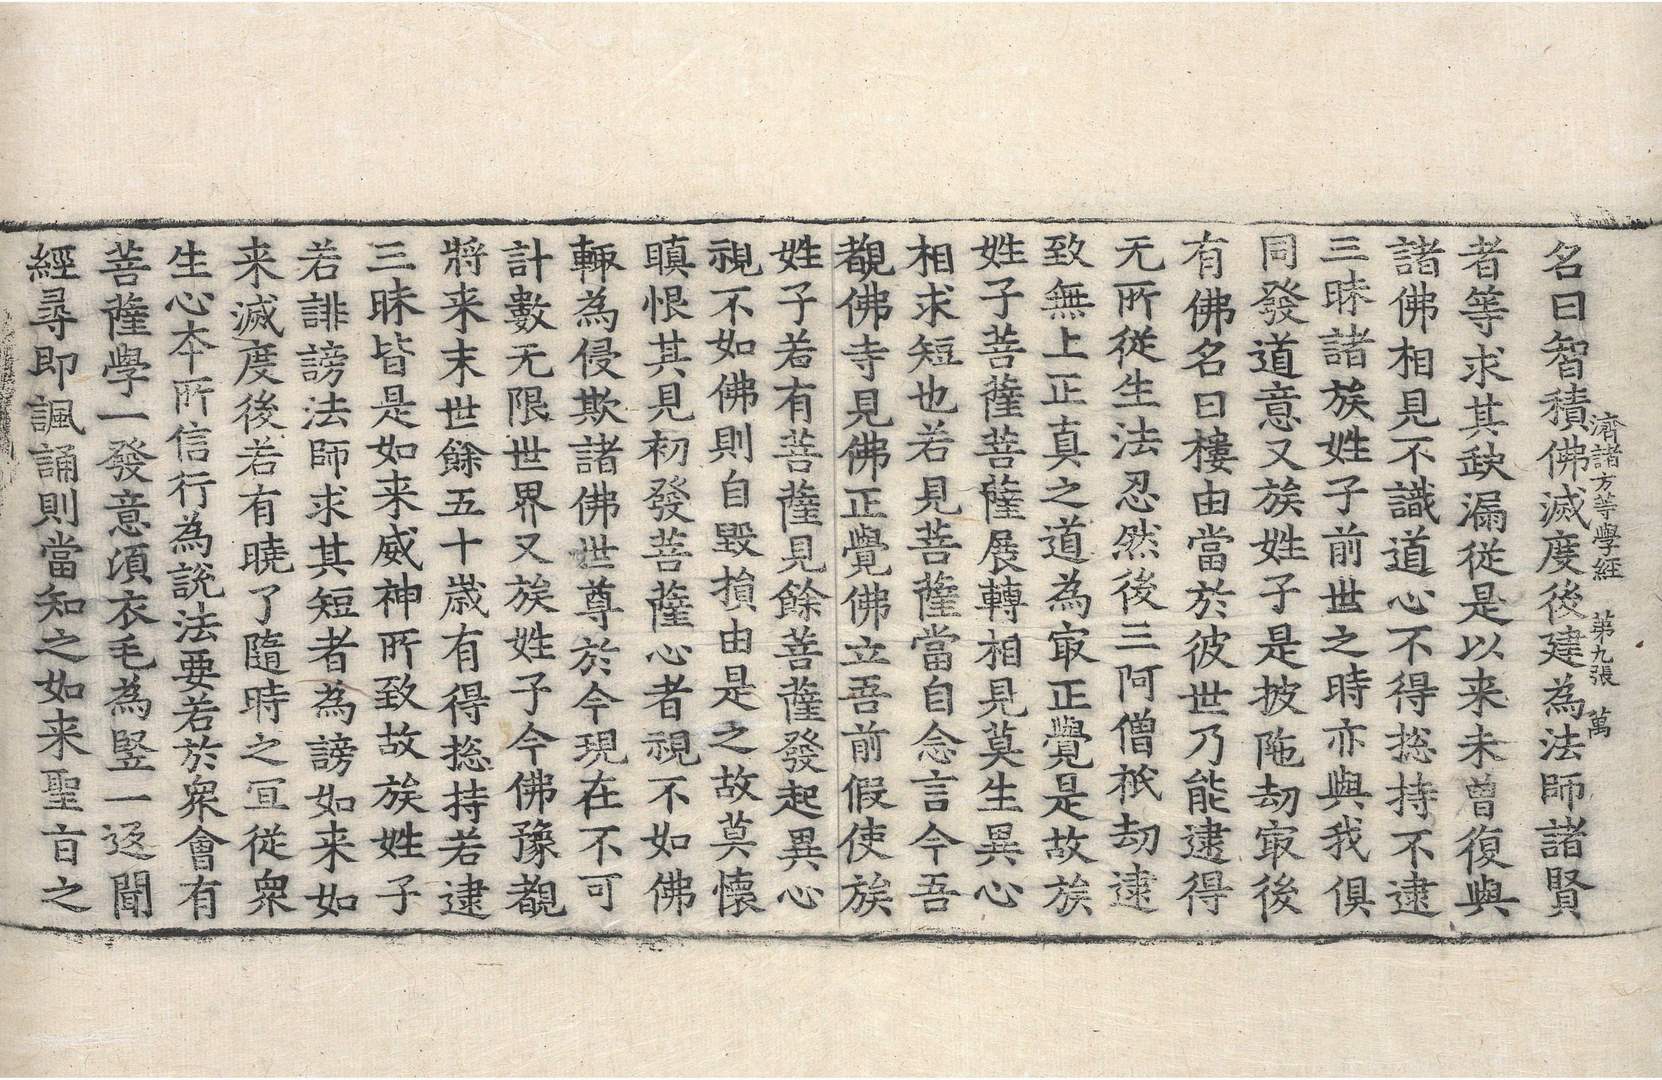 濟諸方等學經 第九張 萬
名曰智積佛滅度後建為法師諸賢
者等求其缺漏從是以来未曾復與
諸佛相見不識道心不得捴持不逮
三昧諸族姓子前世之時亦與我俱
同發道意又族姓子是披陁劫㝡後
有佛名曰樓由當於彼世乃能逮得
无所從生法忍然後三阿僧祇劫逮
致無上正真之道為㝡正覺是故族
姓子菩薩菩薩展轉相見莫生異心
相求短也若見菩薩當自念言今吾
覩佛寺見佛正覺佛立吾前假使族
姓子若有菩薩見餘菩薩發起異心
視不如佛則自毀損由是之故莫懷
瞋恨其見初發菩薩心者視不如佛
輙為侵欺諸佛世尊於今現在不可
計數无限世界又族姓子今佛豫覩
將来末世餘五十歲有得捴持若逮
三昧皆是如来威神所致故族姓子
若誹謗法師求其短者為謗如来如
来滅度後若有曉了隨時之冝從衆
生心本所信行為說法要若於衆會有
菩薩學一發意須衣毛為竪一返聞
經尋即諷誦則當知之如来聖旨之